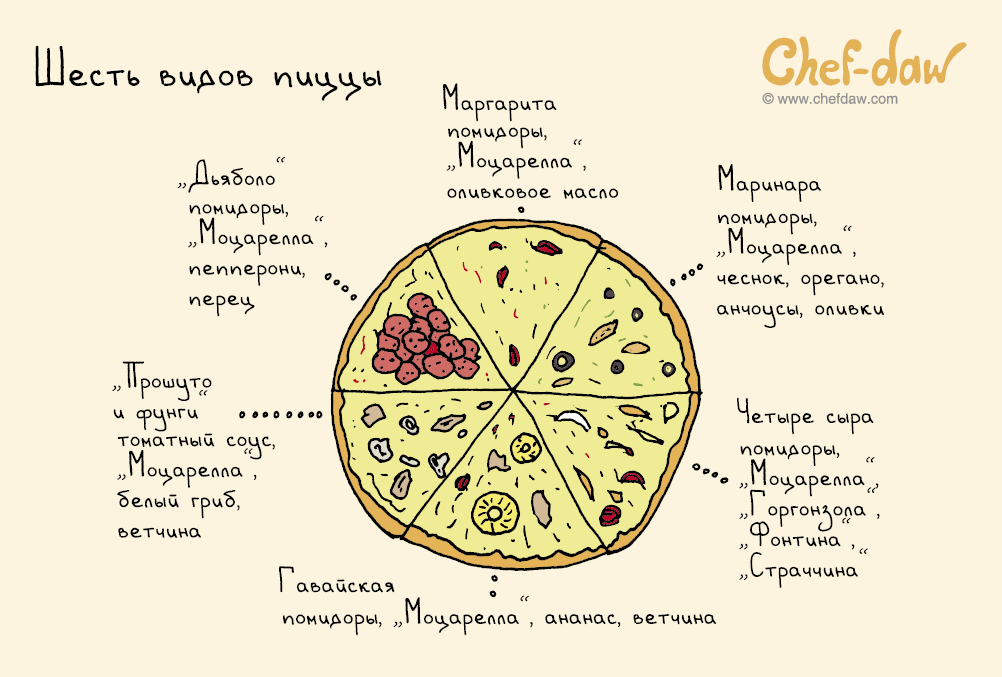 Шесть видов пиццы
Chef-daw
© www.chefdaw.com
Маргарита
помидоры,
„Моцарелла“,
оливковое масло
„Дьяболо“
помидоры,
„Моцарелла“,
пепперони,
перец
Маринара
помидоры,
„Моцарелла“,
чеснок, орегано,
анчоусы, оливки
„Прошуто
и фунги“
томатный соус,
„Моцарелла“,
белый гриб,
ветчина
Четыре сыра
помидоры,
„Моцарелла“,
„Горгонзола“,
„Фонтина“,
„Страччина“
Гавайская
помидоры, „Моцарелла“, ананас, ветчина